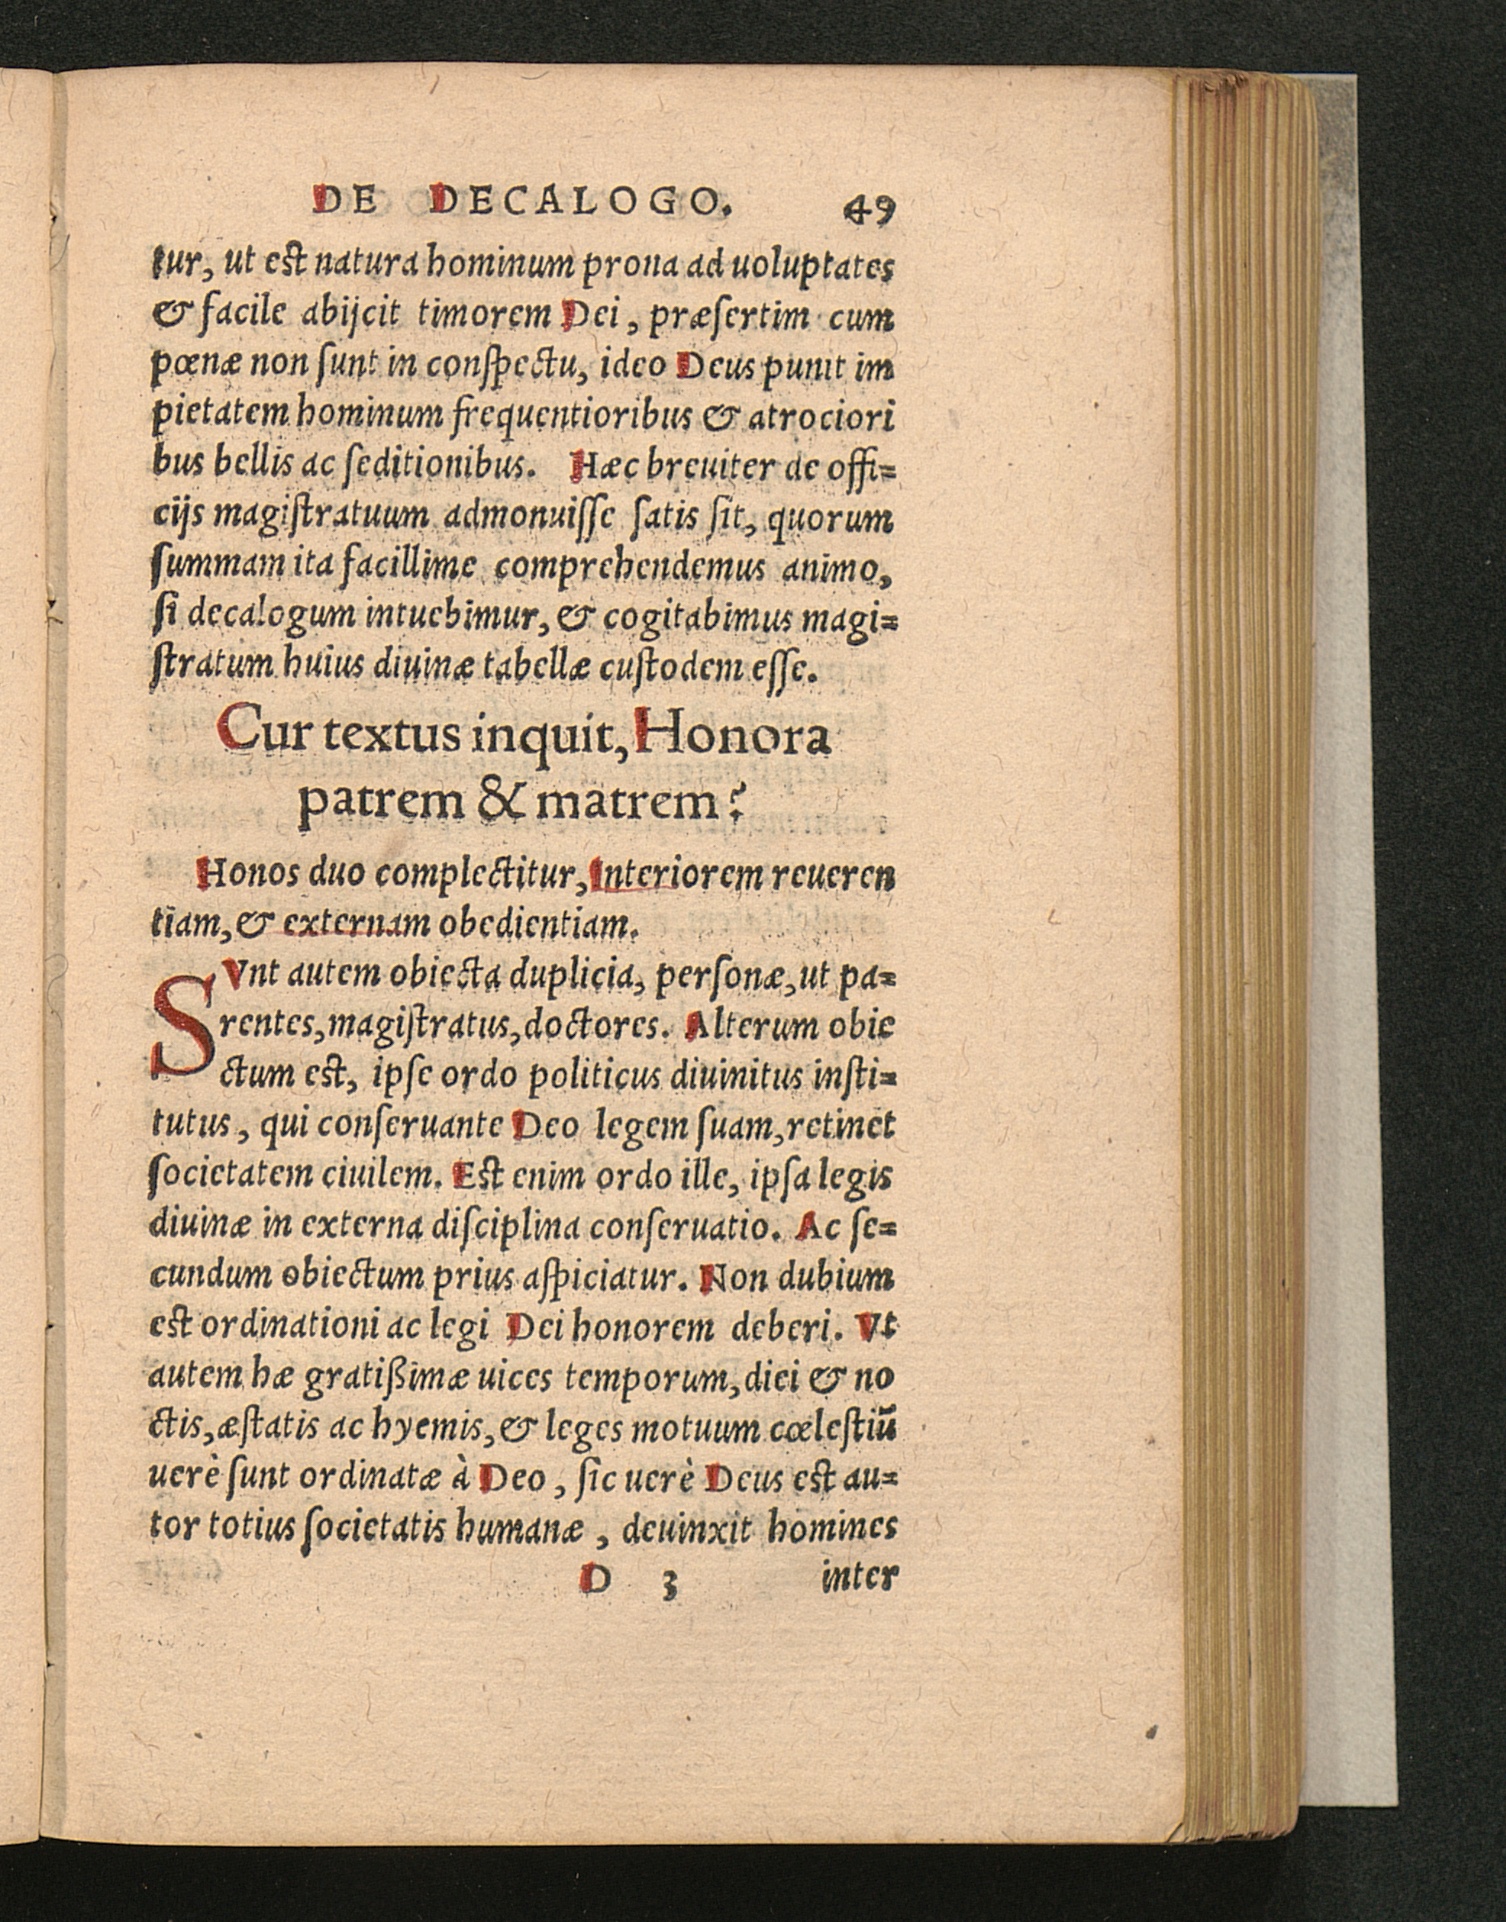 DE DECALOGO. 49
tur, ut est natura hominum prona ad uoluptates
& facile abijcit timorem Dei, præſertim cum
pœnæ non ſunt in conſpectu, ideo Deus punit im
pietatem hominum frequentioribus & atrociori
bus bellis ac ſeditionibus. Hæc breuiter de offi=
cijs magiſtratuum admonuiſſe ſatis ſit, quorum
ſummam ita facillime comprehendemus animo,
ſi decalogum intuebimur, & cogitabimus magi=
ſtratum huius diuinæ tabellæ cuſtodem eſſe.
Cur textus inquit, Honora
patrem & matrem?
Honos duo complectitur, Interiorem reueren
tiam, & externam obedientiam.
SVnt autem obiecta duplicia, perſonæ, ut pa=
rentes, magiſtratus, doctores. Alterum obie
ctum est, ipſe ordo politicus diuinitus inſti=
tutus, qui conſeruante Deo legem ſuam, retinet
ſocietatem ciuilem. Est enim ordo ille, ipſa legis
diuinæ in externa diſciplina conſeruatio. Ac ſe=
cundum obiectum prius aſpiciatur. Non dubium
est ordinationi ac legi Dei honorem deberi. Vt
autem hæ gratißimæ uices temporum, diei & no
ctis, æſtatis ac hyemis, & leges motuum cœleſtiū
uerè ſunt ordinatæ à Deo, ſic uerè Deus est au=
tor totius ſocietatis humanæ, deuinxit homines
D 3 inter